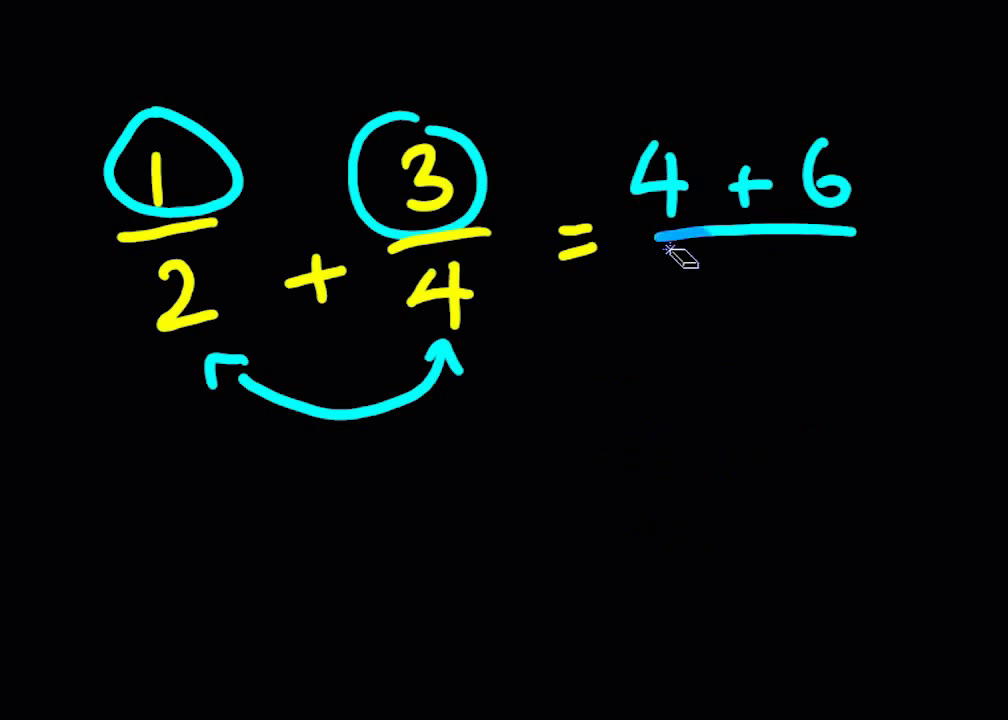 1/2 + 3/4 = 4 + 6